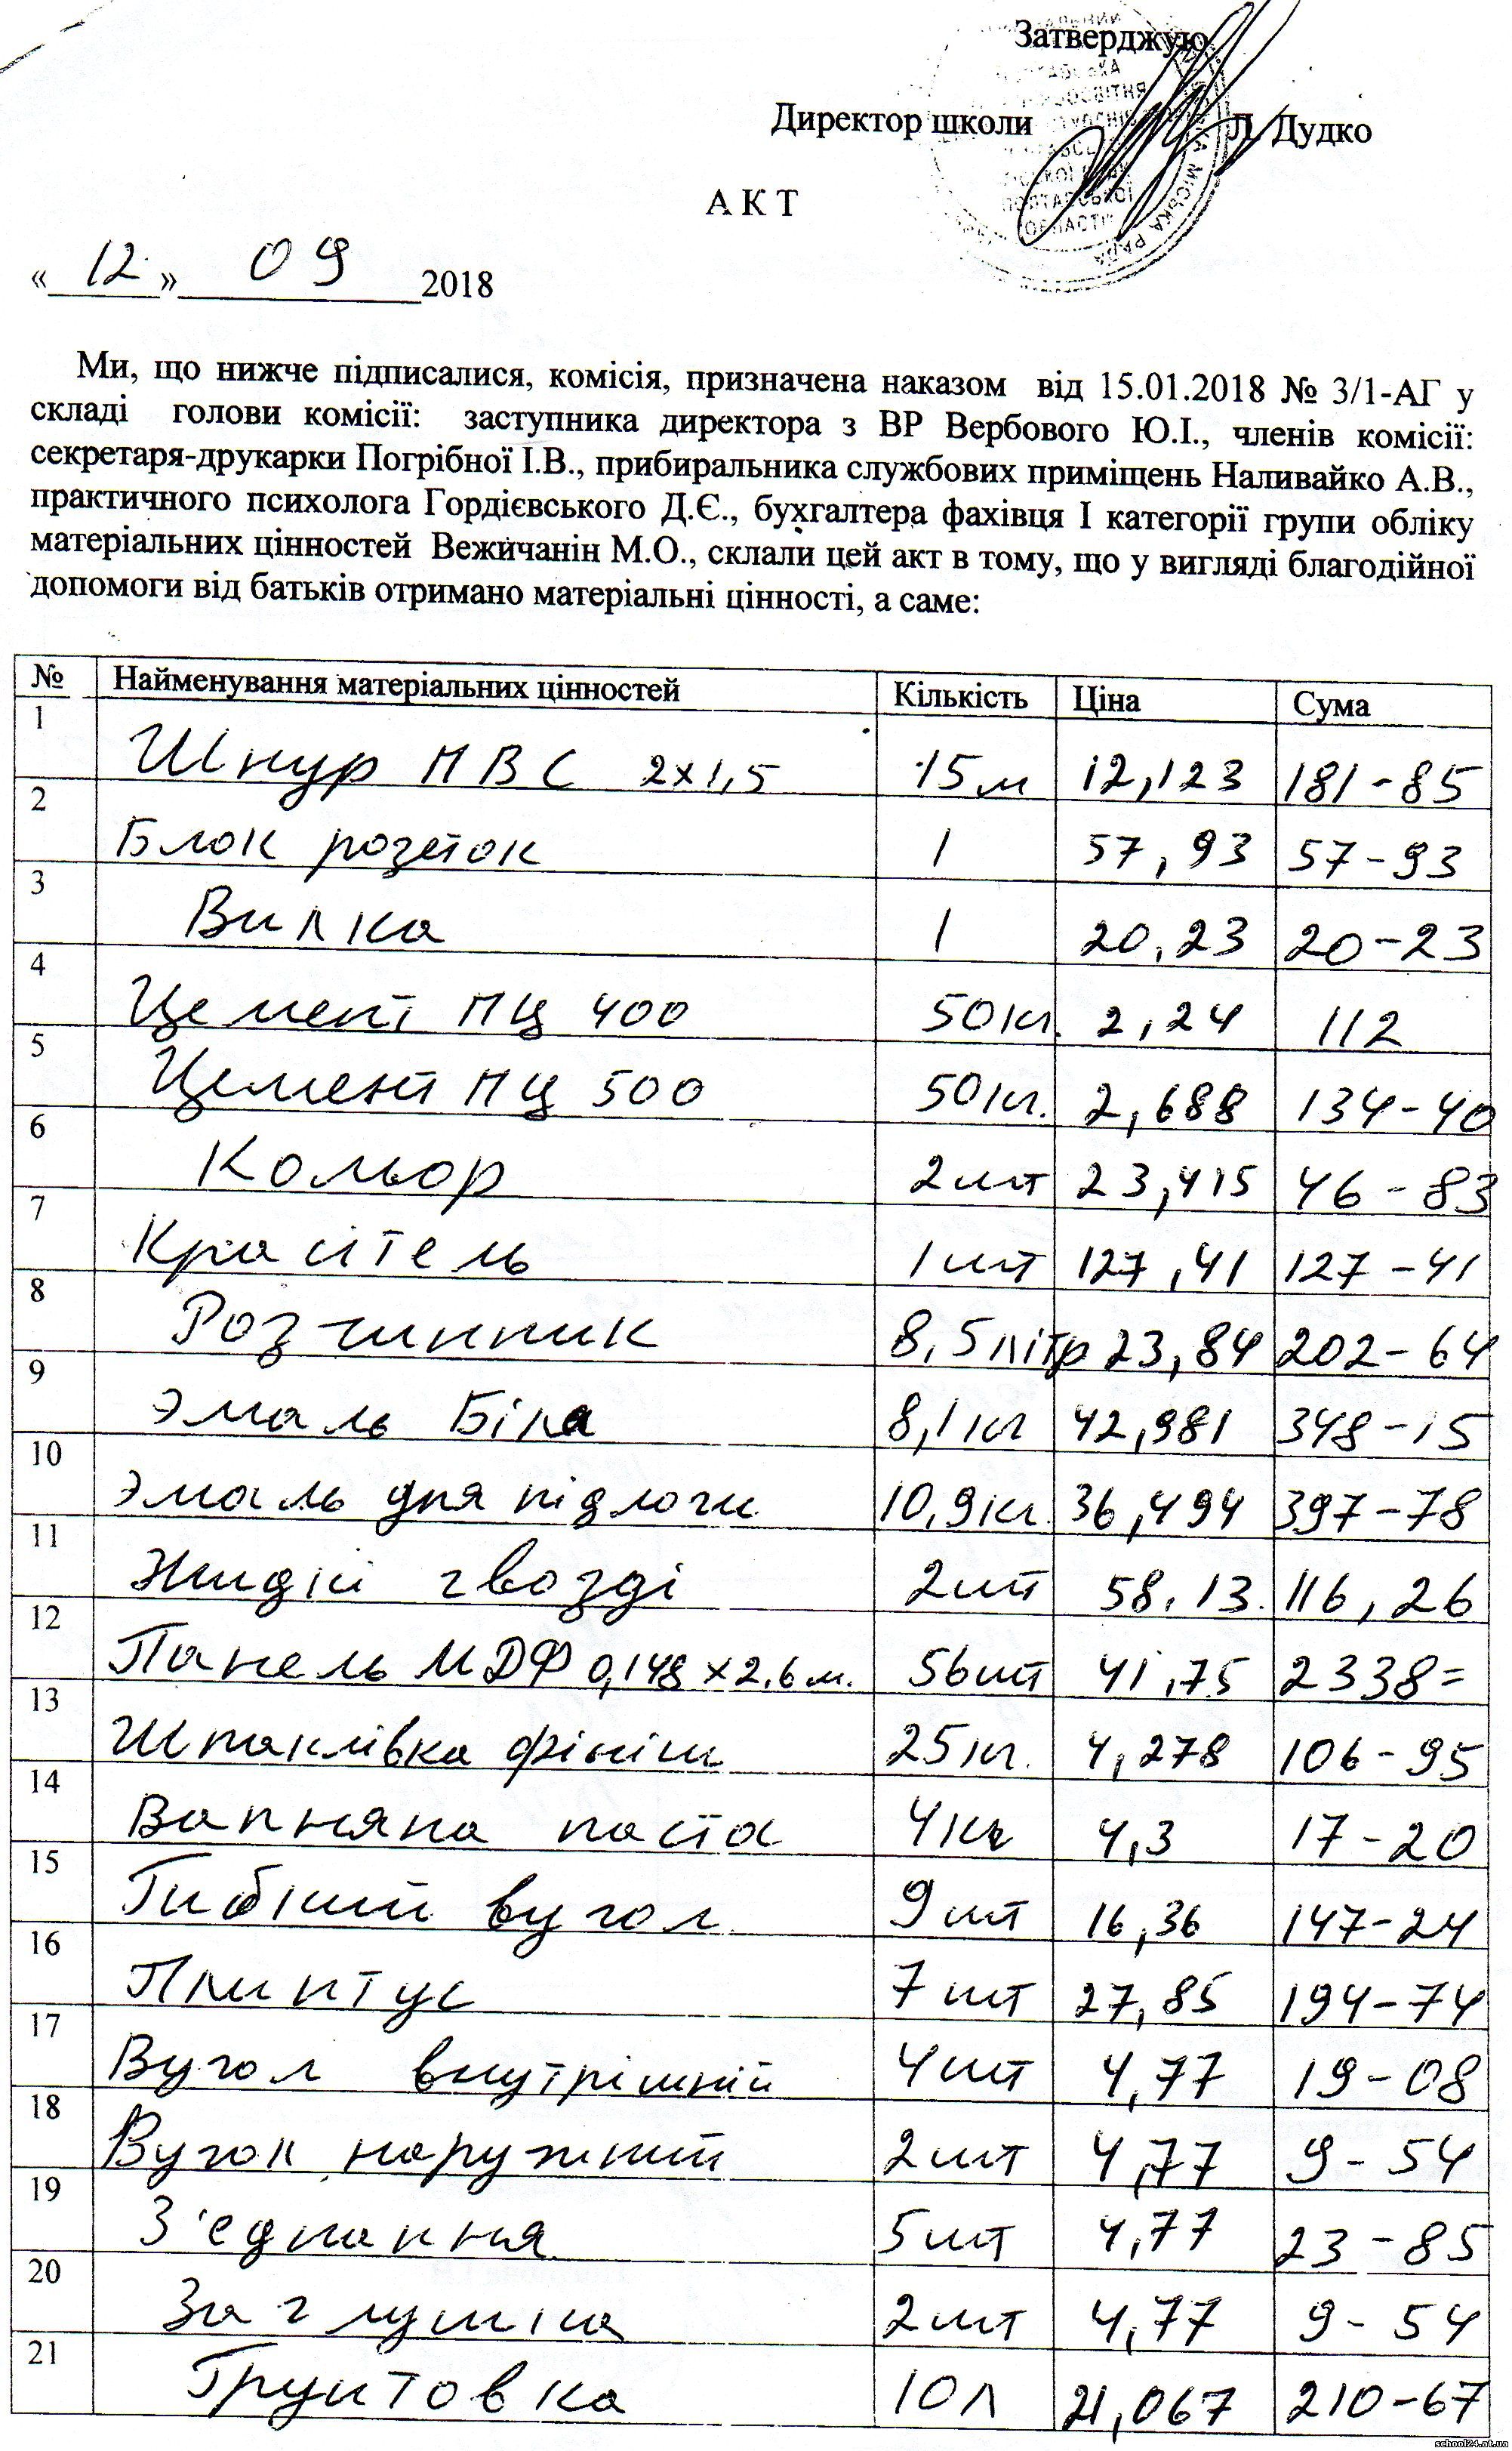 Затверджую
Директор школи Л. Дудко
МІСЬКА РАДА
ПОЛТАВСЬКОЇ
ОБЛАСТІ
АКТ
« 12 » 09 2018
Ми, що нижче підписалися, комісія, призначена наказом від 15.01.2018 № 3/1-АГ у
складі голови комісії: заступника директора з ВР Вербового Ю.І., членів комісії:
секретаря-друкарки Погрібної І.В., прибиральника службових приміщень Наливайко А.В.,
практичного психолога Гордієвського Д.Є., бухгалтера фахівця І категорії групи обліку
матеріальних цінностей Вежичанін М.О., склали цей акт в тому, що у вигляді благодійної
допомоги від батьків отримано матеріальні цінності, а саме:
№ Найменування матеріальних цінностей Кількість Ціна Сума
1 Шнур ПВС 2х1,5 15м 12,123 181-85
2 Блок розеток 1 57,93 57-93
3 Вилка 1 20,23 20-23
4 Цемент ПЦ 400 50кг. 2,24 112
5 Цемент ПЦ 500 50кг. 2,688 134-40
6 Кольор 2шт 23,415 46-83
7 Краситель 1шт 127,41 127-41
8 Розчинник 8,5літр 23,84 202-64
9 Эмаль Біла 8,1кг 42,981 348-15
10 Эмаль для підлоги 10,9кг. 36,494 397-78
11 Жидкі гвозді 2шт 58.13. 116,26
12 Панель МДФ 0,148х2.6м. 56шт 41,75 2338=
13 Шпаклівка фініш 25кг. 4,278 106-95
14 Вапняна паста 4кг 4,3 17-20
15 Гибкий вугол 9шт 16,36 147-24
16 Плинтус 7шт 27,85 194-74
17 Вугол внутрішній 4шт 4,77 19-08
18 Вугол наружний 2шт 4,77 9-54
19 З'єднання 5шт 4,77 23-85
20 Заглушка 2шт 4,77 9-54
21 Грунтовка 10л 21,067 210-67
school24.at.ua